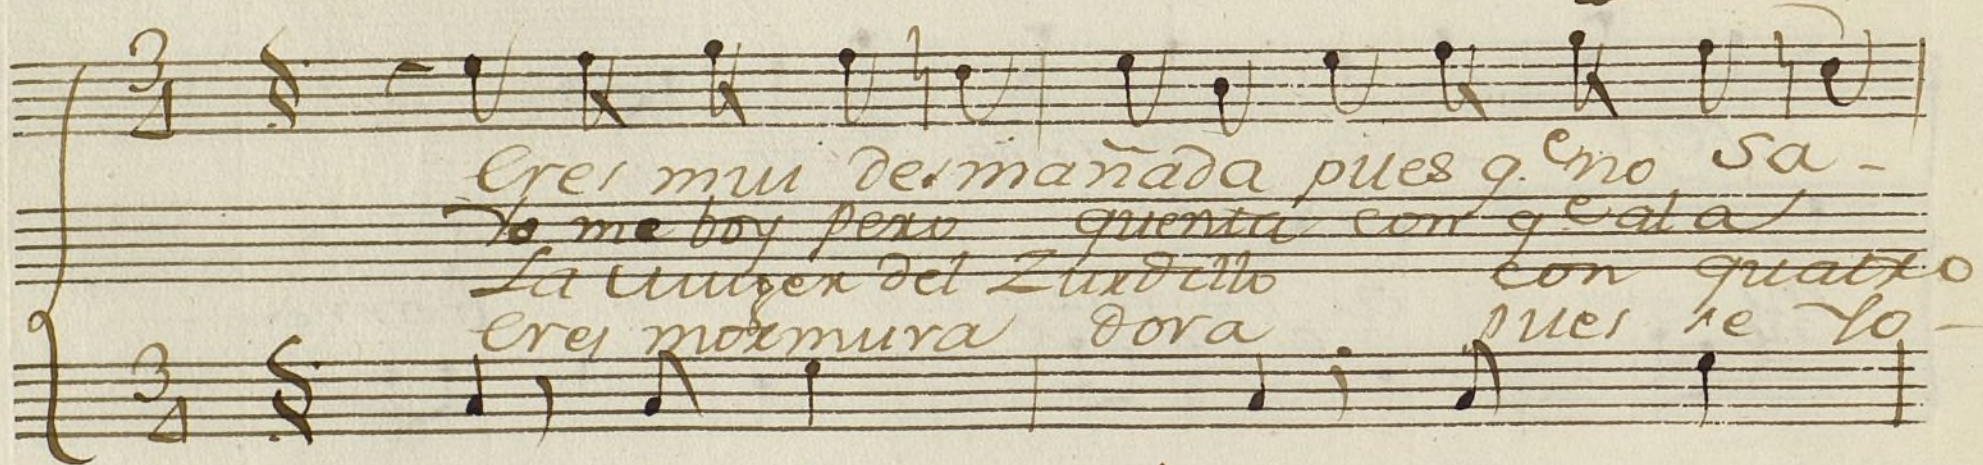 3
4
Eres mui desmañada pues q.e no sa-
Yo me boy pero quenta con q e al a
La Muger del Zurdillo con quatro
Eres mormura dora pues se Yo-
3
4